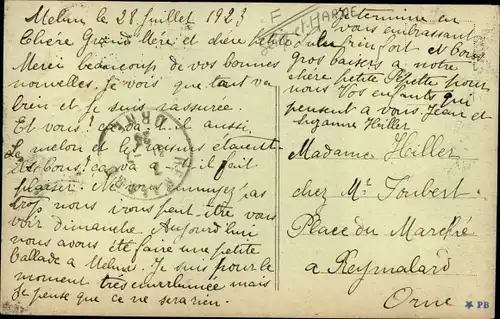 Melun le 28 Juillet 1923
Chère Grand Mère et chère petite
Merci beaucoup de vos bonnes
nouvelles. Je vois que tout va
bien et je suis rassurée.
Et vous! ça va t.il aussi,
Le melon et les raisins étaient
ils bons! ça va t.il fait
plaisir. Ne vous ennuyez pas
trop nous irons peut être vous
voir dimanche. Aujourd'hui
nous avons été faire une petite
ballade à Melun. Je suis pour le
moment très enrhumée mais
je pense que ce ne sera rien.
Je termine en
vous embrassant
bien fort et bons
gros baisers a notre
chère petite
pour
nous Vos enfants qui
pensent a vous Jean et
Suzanne Hiller
Madame Hiller
chez Mr Joubert
Place du Marché
a Reymalard
Orne
ORNE
PB